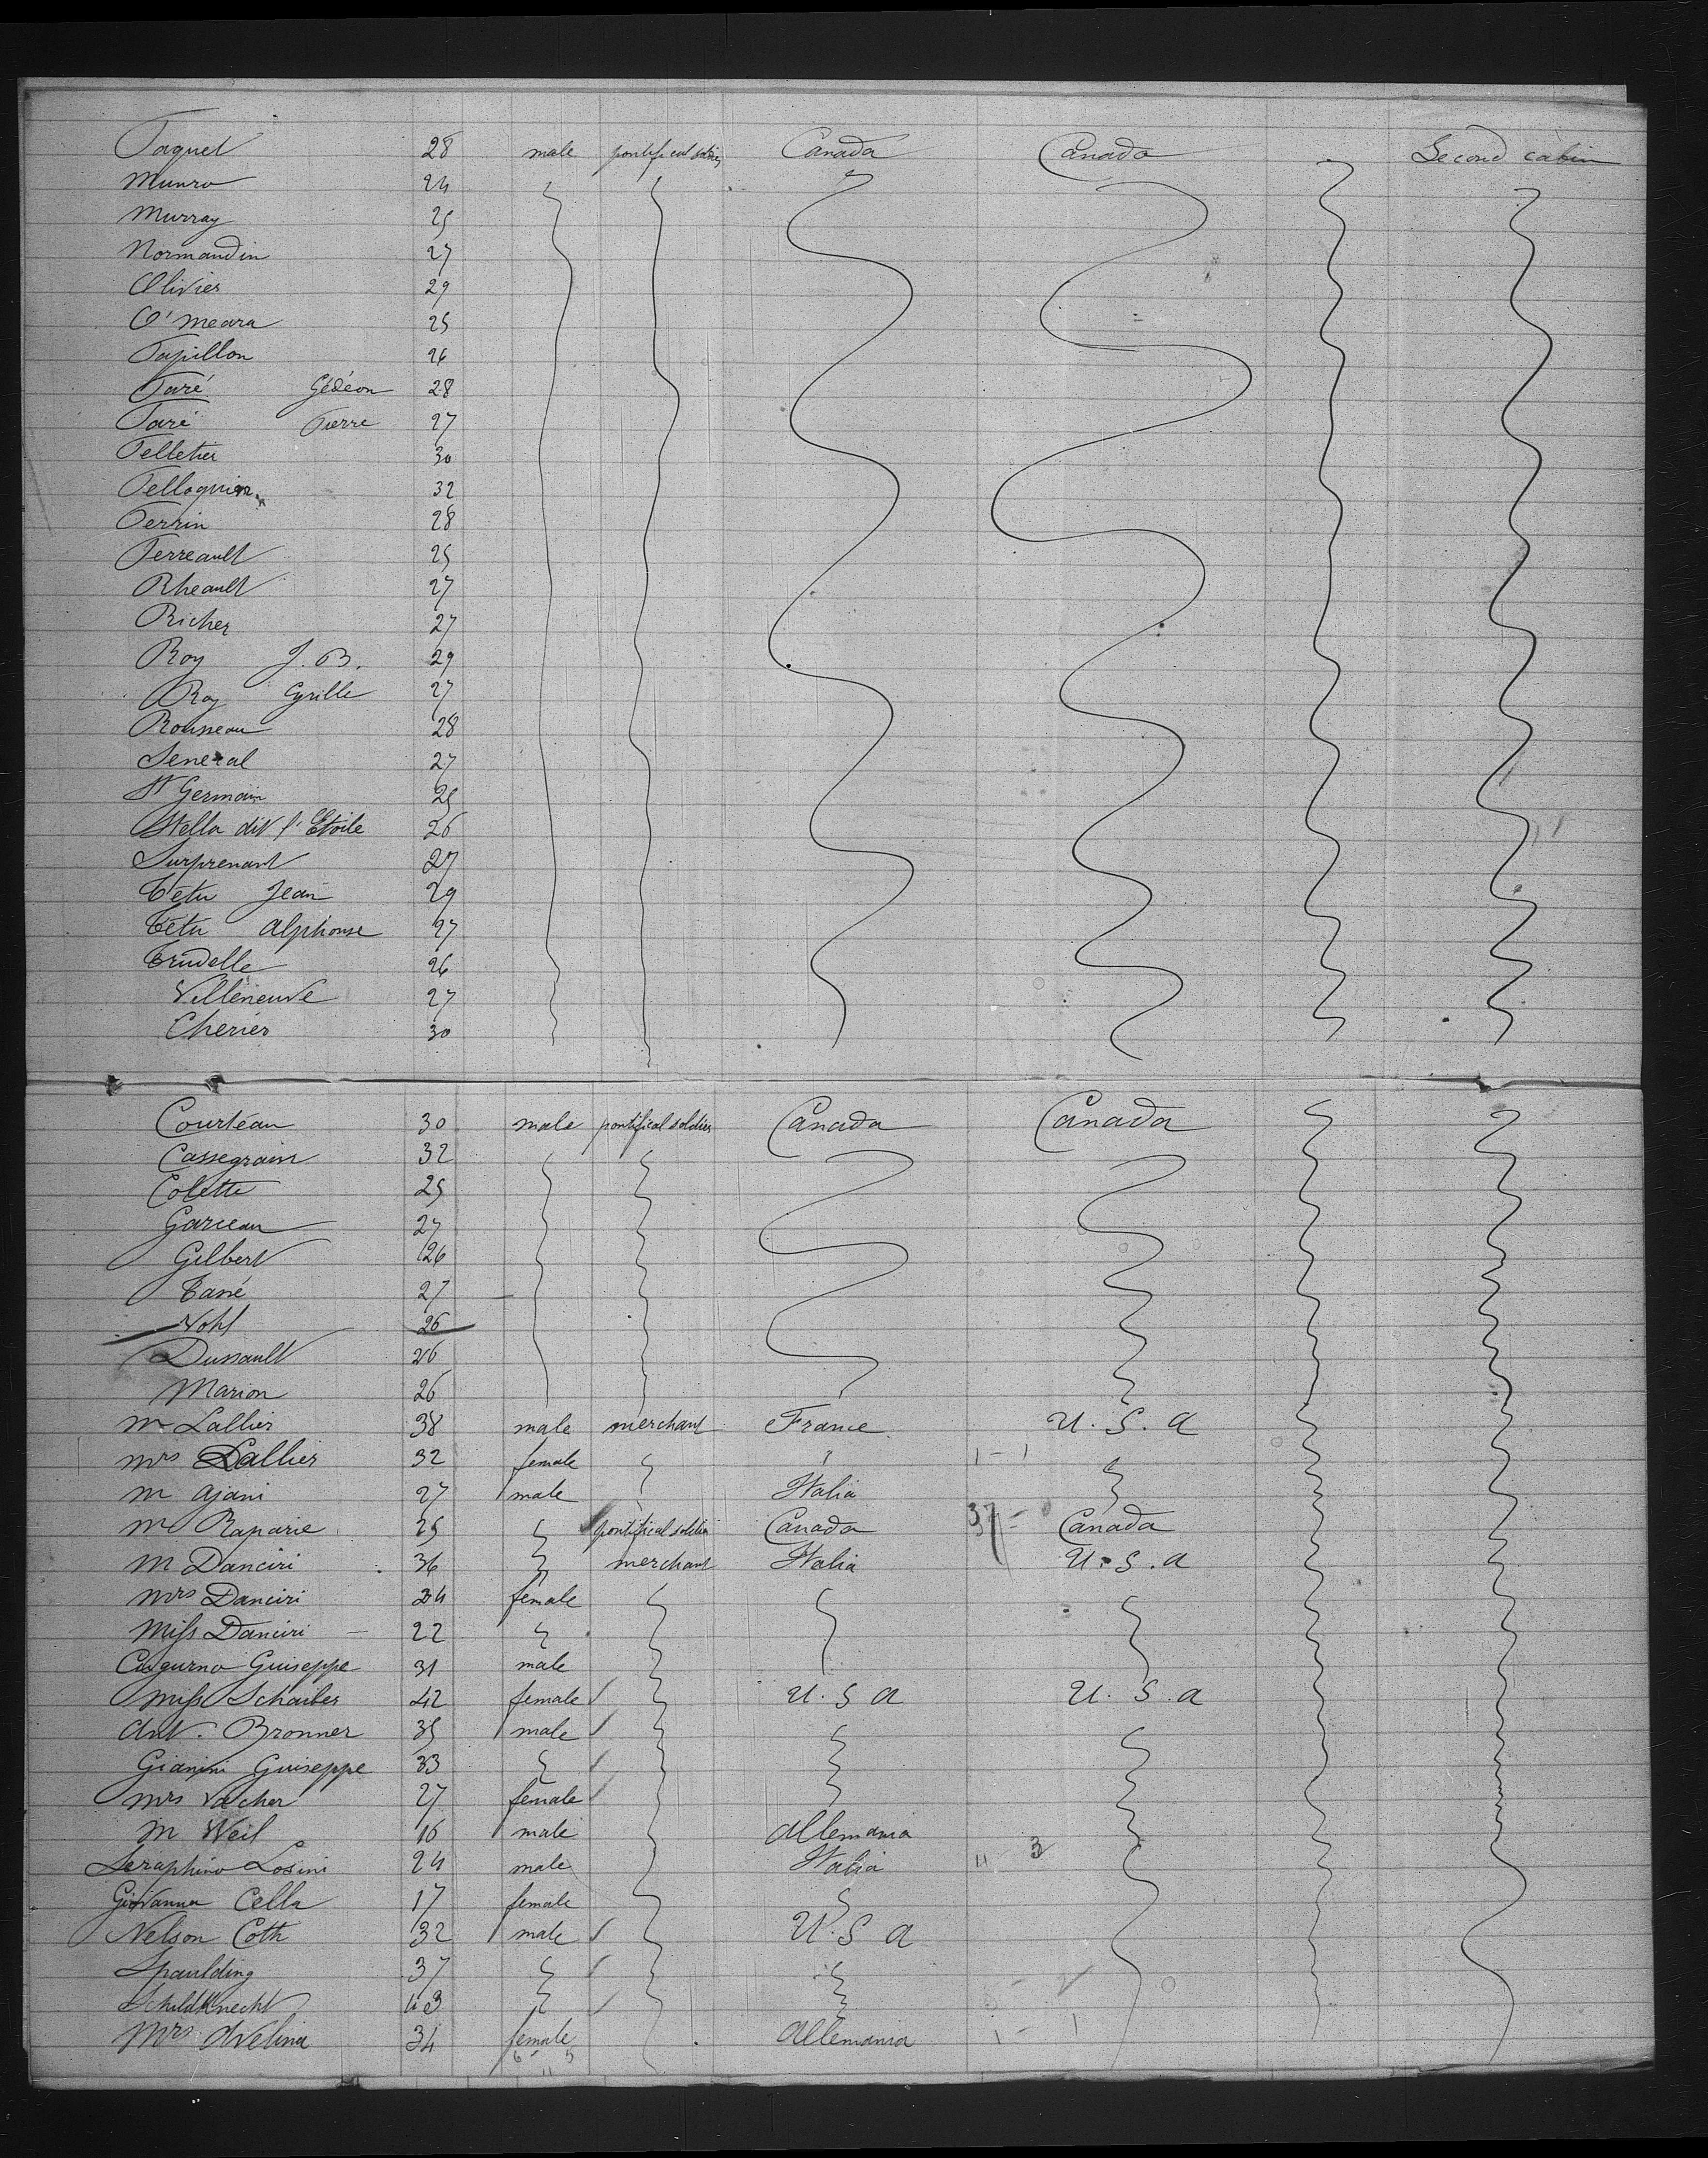 Paquet 28 male pontifical soldier Canada Canada Second cabin
Munro 24
Murray 25
Normandin 27
Olivier 29
O'meara 25
Papillon 26
Paré Gédéon 28
Paré Pierre 27
Pelletier 30
Pelloquin 32
Perrin 28
Perreault 25
Rheault 27
Richer 27
Roy J. B. 29
Roy Cyrille 27
Rousseau 28
Seneral 27
St Germain 25
Stella dit l'Etoile 26
Surprenant 27
Tétu Jean 29
Tétu Alphonse 27
Trudelle 26
Villeneuve 27
Cherier 30
Courteau 30 male pontifical soldier Canada Canada
Cassegrain 32
Colette 25
Garceau 27
Gilbert 26
Tassé 27
Vohl 26
Dussault 26
Marion 26
m Lallier 38 male merchant France U. S. A
mrs Lallier 32 female
m Ajani 27 male Italia
m Raparie 25 pontifical soldier Canada 37 Canada
m Danciri 36 merchant Italia U. S. A
mrs Danciri 24 female
Miss Danciri 22
Cagurno Guiseppe 31 male
Miss Schaiber 42 female U. S A U. S. A
Ant. Bronner 35 male
Gianini Guiseppe 33
mrs Vacher 27 female
m Weil 16 male Allemania
Seraphino Losini 24 male Italia 11 3
Giovanna Cella 17 female
Nelson Coth 32 male U. S A
Spaulding 37
Schildknecht 43
Mrs Avelina 34 female Allemania